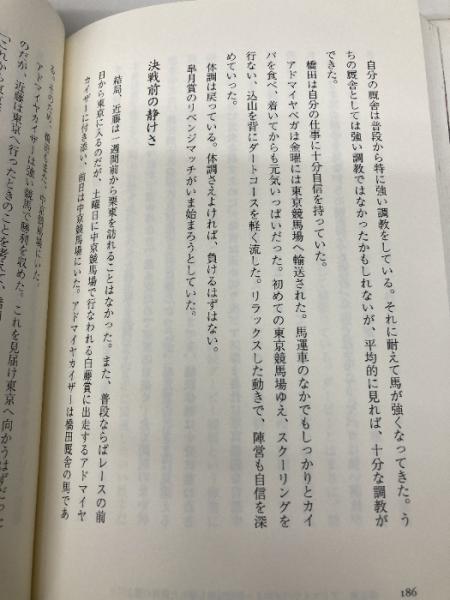 自分の厩舎は普段から特に強い調教をしている。それに耐えて馬が強くなってきた。う
ちの厩舎としては強い調教ではなかったかもしれないが、平均的に見れば、十分な調教が
できた。
橋田は自分の仕事に十分自信を持っていた。
アドマイヤベガは金曜には東京競馬場へ輸送された。馬運車のなかでもしっかりとカイ
バを食べ、着いてからも元気いっぱいだった。初めての東京競馬場ゆえ、スクーリングを
行ない、込山を背にダートコースを軽く流した。リラックスした動きで、陣営も自信を深
めていった。
体調は戻っている。体調さえよければ、負けるはずはない。
皐月賞のリベンジマッチがいま始まろうとしていた。
決戦前の静けさ
結局、近藤は一週間前から栗東を訪れることはなかった。また、普段ならばレースの前
日から東京に入るのだが、土曜日に中京競馬場で行なわれる白藤賞に出走するアドマイヤ
カイザーに付き添い、前日は中京競馬場にいた。アドマイヤカイザーは橋田厩舎の馬であ
る。そのため、橋田もまた、中京競馬場にいた。
アドマイヤカイザーは強い競馬で勝利を収めた。これを見届け東京へ向かうはずだった
のだが、近藤は東京へ行ったときのことを考えて、
186